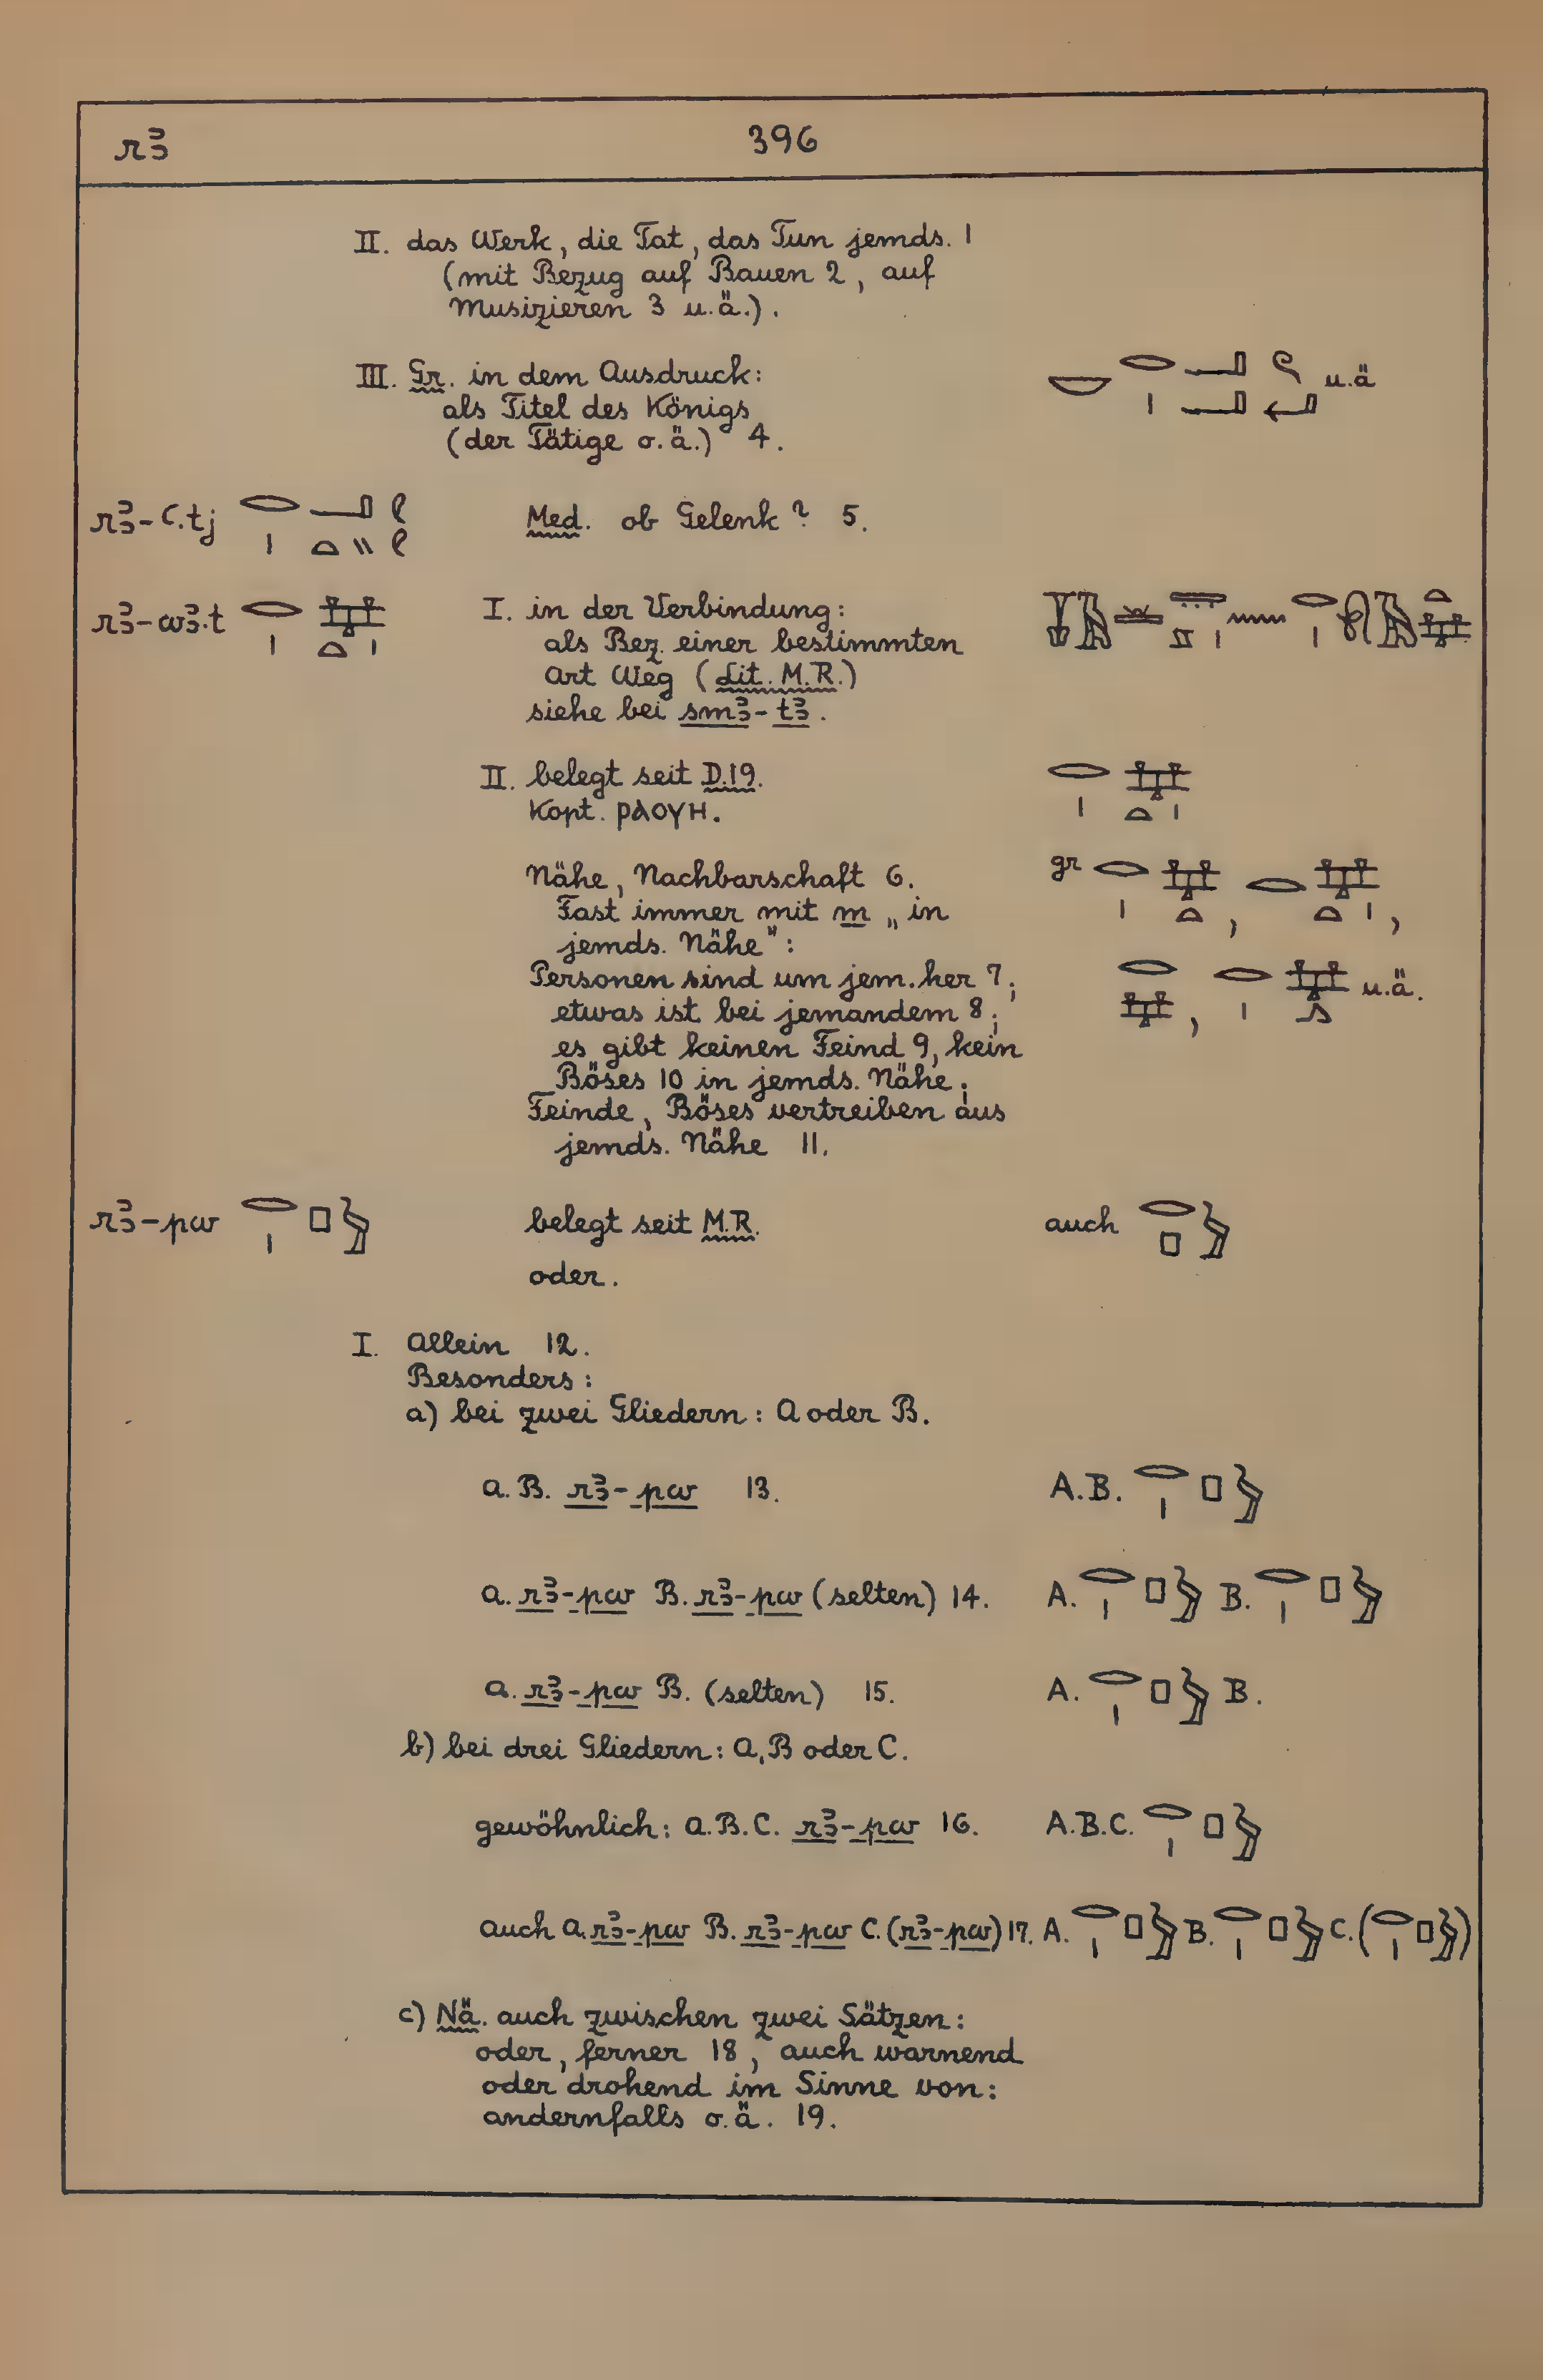 rꜣ 396
II. das Werk, die Tat, das Tun jemds. 1
(mit Bezug auf Bauen 2, auf
Musizieren 3 u.ä.).
III. Gr. in dem Ausdruck: u.ä
als Titel des Königs
(der Tätige o.ä.) 4.
rꜣ-ꜥ.tj Med. ob Gelenk? 5.
rꜣ-wꜣ.t I. in der Verbindung:
als Bez. einer bestimmten
Art Weg (Lit. M.R.)
siehe bei smꜣ-tꜣ.
II. belegt seit D.19.
Kopt. ⲣⲁⲟⲩⲏ.
Nähe, Nachbarschaft 6. gr
Fast immer mit m „in
jemds. Nähe":
Personen sind um jem. her 7; u.ä.
etwas ist bei jemandem 8;
es gibt keinen Feind 9, kein
Böses 10 in jemds. Nähe;
Feinde, Böses vertreiben aus
jemds. Nähe 11.
rꜣ-pw belegt seit M.R. auch
oder.
I. Allein 12.
Besonders:
a) bei zwei Gliedern: A oder B.
A. B. rꜣ-pw 13. A.B.
A. rꜣ-pw B. rꜣ-pw (selten) 14. A. B.
A. rꜣ-pw B. (selten) 15. A. B.
b) bei drei Gliedern: A, B oder C.
gewöhnlich: A.B.C. rꜣ-pw 16. A.B.C.
auch A. rꜣ-pw B. rꜣ-pw C. (rꜣ-pw) 17. A. B. C. ( )
c) Nä. auch zwischen zwei Sätzen:
oder, ferner 18, auch warnend
oder drohend im Sinne von:
andernfalls o.ä. 19.